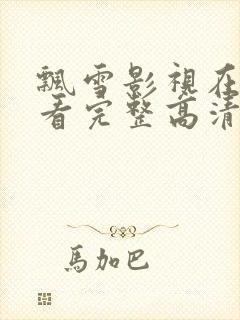 飄雪影視在
看完整高清
馬加巴